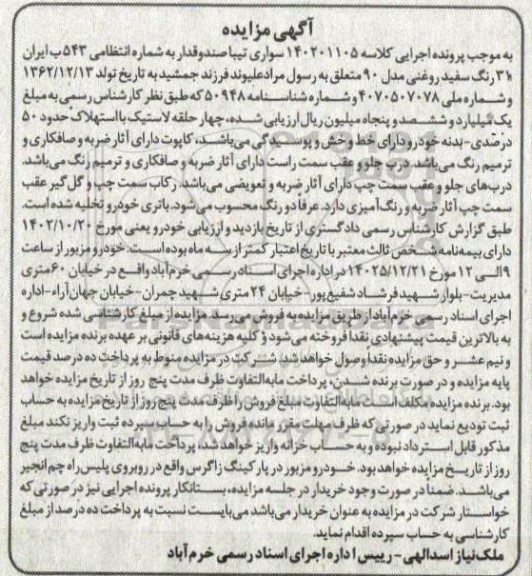 آگهی مزایده
به موجب پرونده اجرایی کلاسه ۱۴۰۲۰۱۱۰۵ سواری تیبا صندوقدار به شماره انتظامی ۵۴۳ب ایران
۳۱ رنگ سفید روغنی مدل ۹۰ متعلق به رسول مرادعلیوند فرزند جمشید به تاریخ تولد ۱۳۶۲/۱۲/۱۳
و شماره ملی ۴۰۷۰۵۰۷۰۷۸ و شماره شناسنامه ۵۰۹۴۸ که طبق نظر کارشناس رسمی به مبلغ
یک میلیارد و ششصد و پنجاه میلیون ریال ارزیابی شده، چهار حلقه لاستیک با استهلاک حدود ۵۰
درصدی-بدنه خودرو دارای خط و خش و پوسیدگی می‌باشد، کاپوت دارای آثار ضربه و صافکاری و
ترمیم رنگ می‌باشد. درب جلو و عقب سمت راست دارای آثار ضربه و صافکاری و ترمیم رنگ می‌باشد.
درب‌های جلو و عقب سمت چپ دارای آثار ضربه و تعویضی می‌باشد، رکاب سمت چپ و گل گیر عقب
سمت چپ آثار ضربه و رنگ آمیزی دارد. عرفا دو رنگ محسوب می‌شود. باتری خودرو تخلیه شده است.
طبق گزارش کارشناس رسمی دادگستری از تاریخ بازدید و ارزیابی خودرو یعنی مورخ ۱۴۰۲/۱۰/۲۰
دارای بیمه‌نامه شخص ثالث معتبر با تاریخ اعتبار کمتر از سه ماه بوده است. خودرو مزبور از ساعت
۹ الی ۱۲ مورخ ۱۴۰۲۵/۱۲/۲۱ در اداره اجرای اسناد رسمی خرم آباد واقع در خیابان ۶۰ متری
مدیریت-بلوار شهید فرشاد شفیع‌پور-خیابان ۲۴ متری شهید چمران-خیابان جهان‌آراء-اداره
اجرای اسناد رسمی خرم‌آباد از طریق مزایده به فروش می‌رسد. مزایده از مبلغ کارشناسی شده شروع و
به بالاترین قیمت پیشنهادی نقدا فروخته می‌شود و کلیه هزینه‌های قانونی بر عهده برنده مزایده است
و نیم عشر و حق مزایده نقدا وصول خواهد شد. شرکت در مزایده منوط به پرداخت ده درصد قیمت
پایه مزایده و در صورت برنده شدن، پرداخت مابه‌التفاوت ظرف مدت پنج روز از تاریخ مزایده خواهد
بود. برنده مزایده مکلف است مابه‌التفاوت مبلغ فروش را ظرف مدت پنج روز از تاریخ مزایده به حساب
ثبت تودیع نماید در صورتی که ظرف مهلت مقرر مانده فروش را به حساب سپرده ثبت واریز نکند مبلغ
مذکور قابل استرداد نبوده و به حساب خزانه واریز خواهد شد، پرداخت مابه‌التفاوت ظرف مدت پنج
روز از تاریخ مزایده خواهد بود. خودرو مزبور در پارکینگ زاگرس واقع در روبروی پلیس راه چم انجیر
می‌باشد. ضمنا در صورت وجود خریدار در جلسه مزایده، بستانکار پرونده اجرایی نیز در صورتی که
خواستار شرکت در مزایده به عنوان خریدار می‌باشد می‌بایست نسبت به پرداخت ده درصد از مبلغ
کارشناسی به حساب سپرده اقدام نماید.
ملک نیاز اسدالهی-رییس اداره اجرای اسناد رسمی خرم آباد